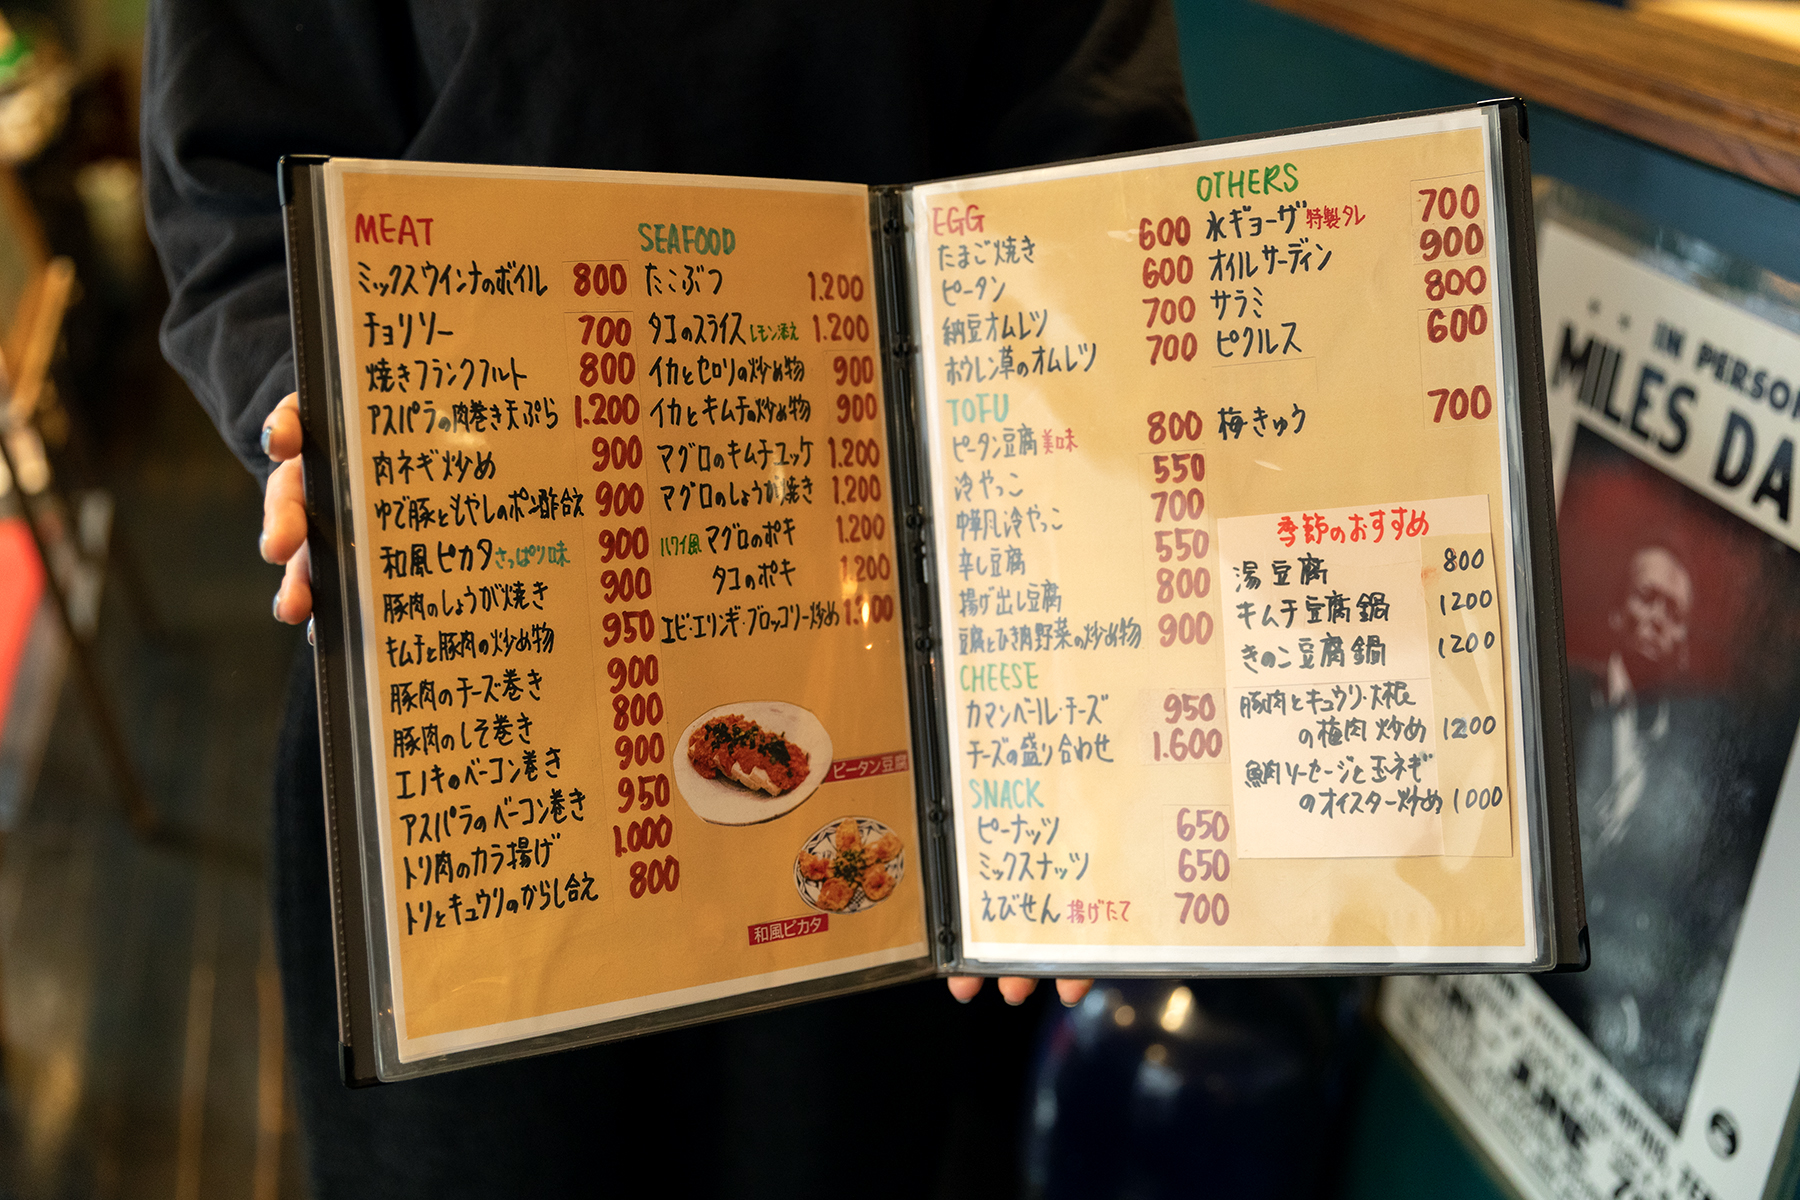 MEAT
ミックスウインナのボイル 800
チョリソー 700
焼きフランクフルト 800
アスパラの肉巻き天ぷら 1.200
肉ネギ炒め 900
ゆで豚ともやしのポン酢合え 900
和風ピカタ さっぱり味 900
豚肉のしょうが焼き 900
キムチと豚肉の炒め物 950
豚肉のチーズ巻き 900
豚肉のしそ巻き 800
エノキのベーコン巻き 900
アスパラのベーコン巻き 950
トリ肉のカラ揚げ 1.000
トリとキュウリのからし合え 800
SEAFOOD
たこぶつ 1.200
タコのスライス レモン添え 1.200
イカとセロリの炒め物 900
イカとキムチの炒め物 900
マグロのキムチユッケ 1.200
マグロのしょうが焼き 1.200
ハワイ風 マグロのポキ 1.200
タコのポキ 1.200
エビ・エリンギ・ブロッコリー炒め
ピータン豆腐
和風ピカタ
EGG
たまご焼き 600
ピータン 600
納豆オムレツ 700
ホウレン草のオムレツ 700
TOFU
ピータン豆腐 美味 800
冷やっこ 550
中華風冷やっこ 700
辛し豆腐 550
揚げ出し豆腐 800
豆腐とひき肉野菜の炒め物 900
CHEESE
カマンベール・チーズ 950
チーズの盛り合わせ 1.600
SNACK
ピーナッツ 650
ミックスナッツ 650
えびせん 揚げたて 700
OTHERS
水ギョーザ 特製タレ 700
オイルサーディン 900
サラミ 800
ピクルス 600
梅きゅう 700
季節のおすすめ
湯豆腐 800
キムチ豆腐鍋 1200
きのこ豆腐鍋 1200
豚肉とキュウリ・大根
の梅肉炒め 1200
魚肉ソーセージと玉ネギ
のオイスター炒め 1000
IN PERSO
MILES DA
JUNE